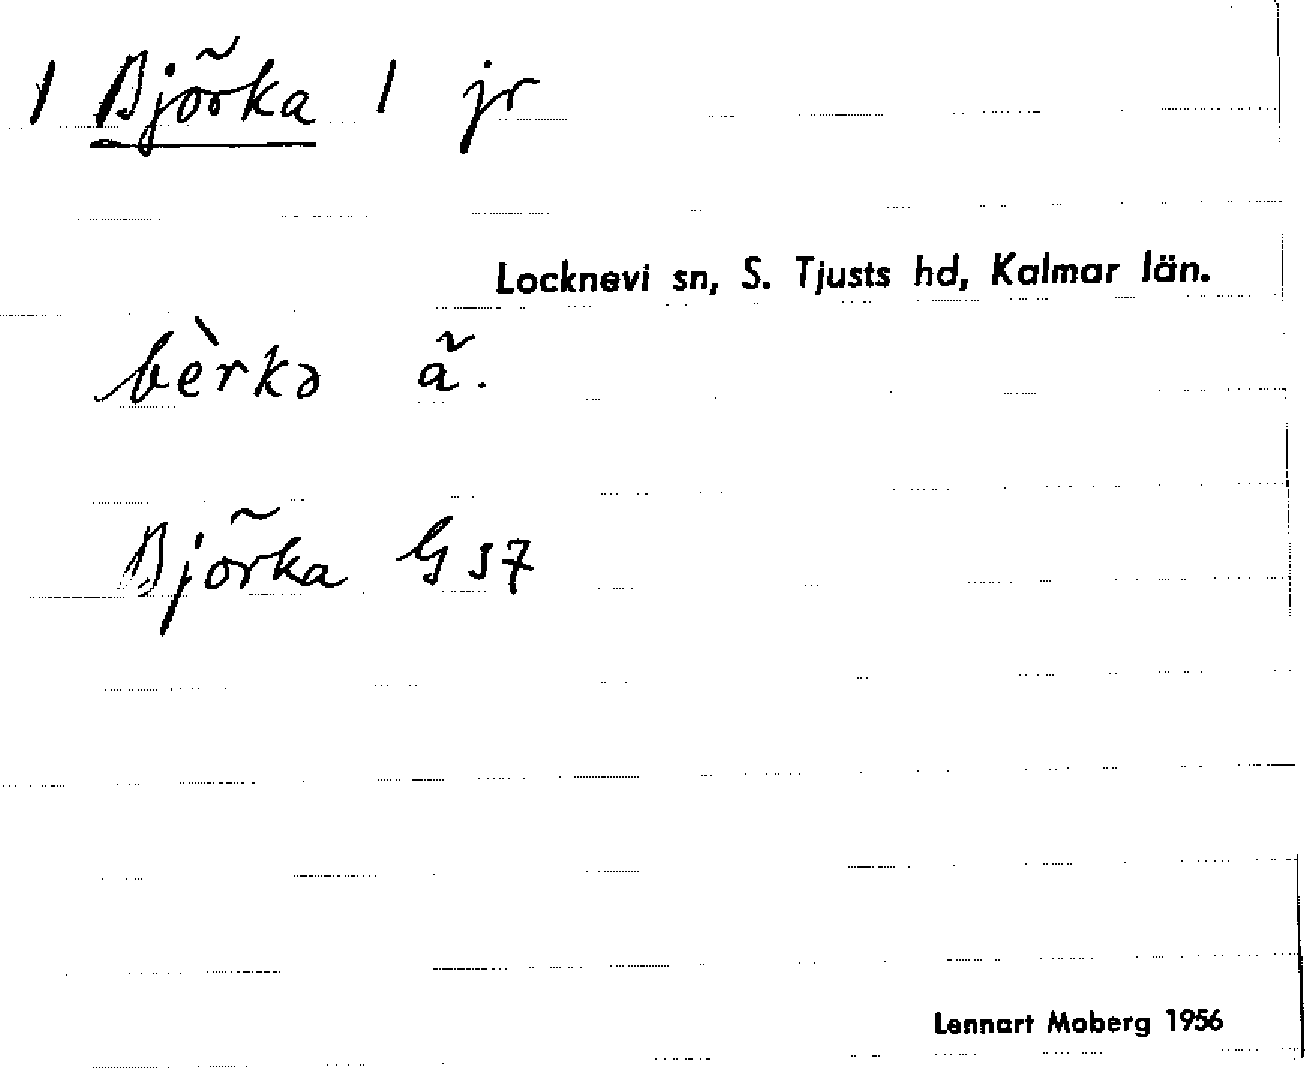 1 Björka 1 jr
Locknevi sn, S. Tjusts hd, Kalmar län.
bèrkə ã.
Björka G 57
Lennart Moberg 1956